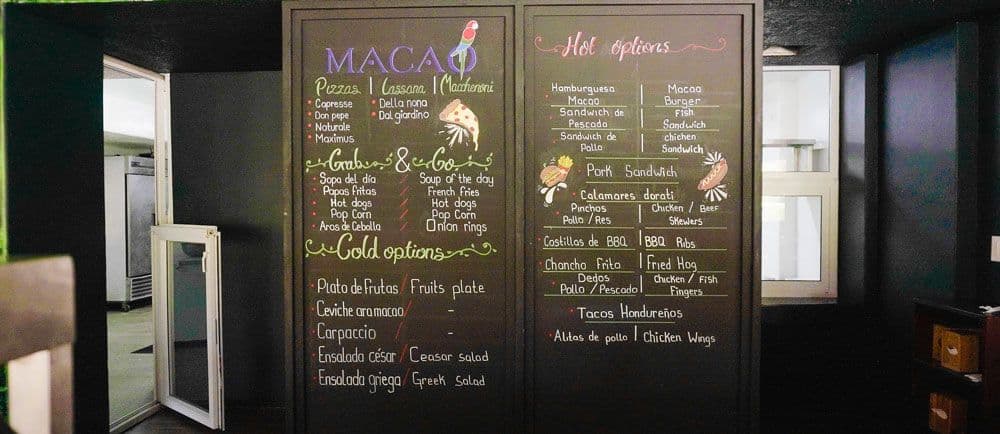 MACAO
Pizzas | Lassana | Maccheroni
Capresse
Don pepe
Naturale
Maximus
Della nona
Dal giardino
Grab & Go
Sopa del día / Soup of the day
Papas fritas / French fries
Hot dogs / Hot dogs
Pop Corn / Pop Corn
Aros de Cebolla / Onion rings
Cold options
Plato de Frutas / Fruits plate
Ceviche ara macao / -
Carpaccio / -
Ensalada césar / Ceasar salad
Ensalada griega / Greek Salad
Hot options
Hamburguesa | Macao
Macao | Burger
Sandwich de | Fish
Pescado | Sandwich
Sandwich de | chichen
Pollo | Sandwich
Pork Sandwich
Calamares dorati
Pinchos | Chicken / Beef
Pollo / Res | Skewers
Costillas de BBQ | BBQ Ribs
Chancho Frito | Fried Hog
Dedos | Chicken / Fish
Pollo / Pescado | Fingers
Tacos Hondureños
Alitas de pollo | Chicken Wings